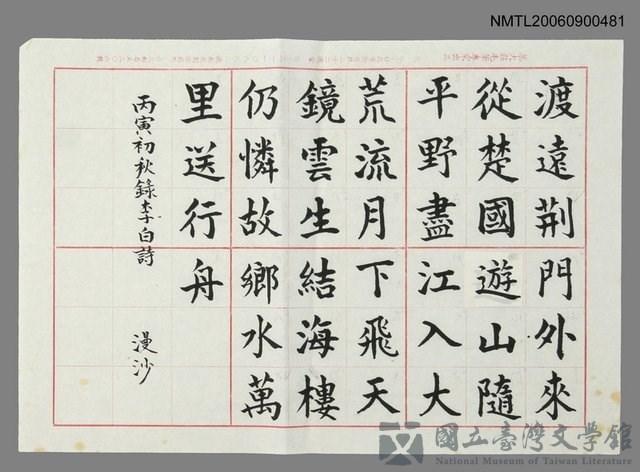 NMTL20060900481
渡遠荆門外來
從楚國遊山隨
平野盡江入大
荒流月下飛天
鏡雲生結海樓
仍憐故鄉水萬
里送行舟
丙寅初秋錄李白詩 漫沙
國立臺灣文學館
National Museum of Taiwan Literature